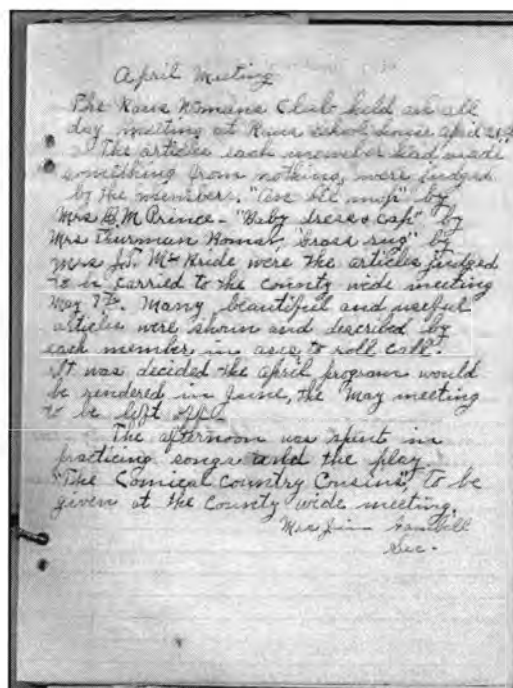 April Meeting
The Womans Club held an all
day meeting at school house april
The articles each member had made
something from nothing, were judged
by the members. by
Mrs M Prince - "Baby dress & cap" by
Mrs Thurman rug" by
Mrs J.T. McBride were the articles judged
to be carried to the county wide meeting
May 7th. Many beautiful and useful
articles were shown and described by
each member in to roll call.
It was decided the april program would
be rendered in June, the May meeting
to be left off.
The afternoon was spent in
practicing songs and the play
"The Comical Country Cousins," to be
given at the County wide meeting.
Mrs Jim
Sec.